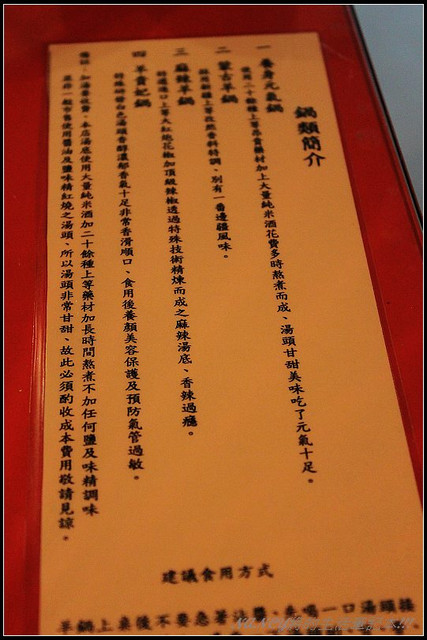 鍋類簡介
一 養身元氣鍋
使用二十餘種上等昂貴藥材加上大量純米酒花費多時熬煮而成、湯頭甘甜美味吃了元氣十足。
二 蒙古羊鍋
採用新疆上等孜然香料特調、別有一番邊疆風味。
三 麻辣羊鍋
特選進口上等大紅袍花椒加頂級辣椒透過特殊技術精煉而成之麻辣湯底、香辣過癮。
四 羊貴妃鍋
特殊研發白色湯頭香醇濃郁香氣十足非常香滑順口、食用後養顏美容保護及預防氣管過敏。
備註：加湯要收費，本店湯底使用大量純米酒加二十餘種上等藥材加長時間熬煮不加任何鹽及味精調味
並非一般市售使用醬油及鹽味精紅燒之湯頭、所以湯頭非常甘甜、故此必須酌收成本費用敬請見諒。
建議食用方式
羊鍋上桌後不要急著沾醬、先喝一口湯頭接